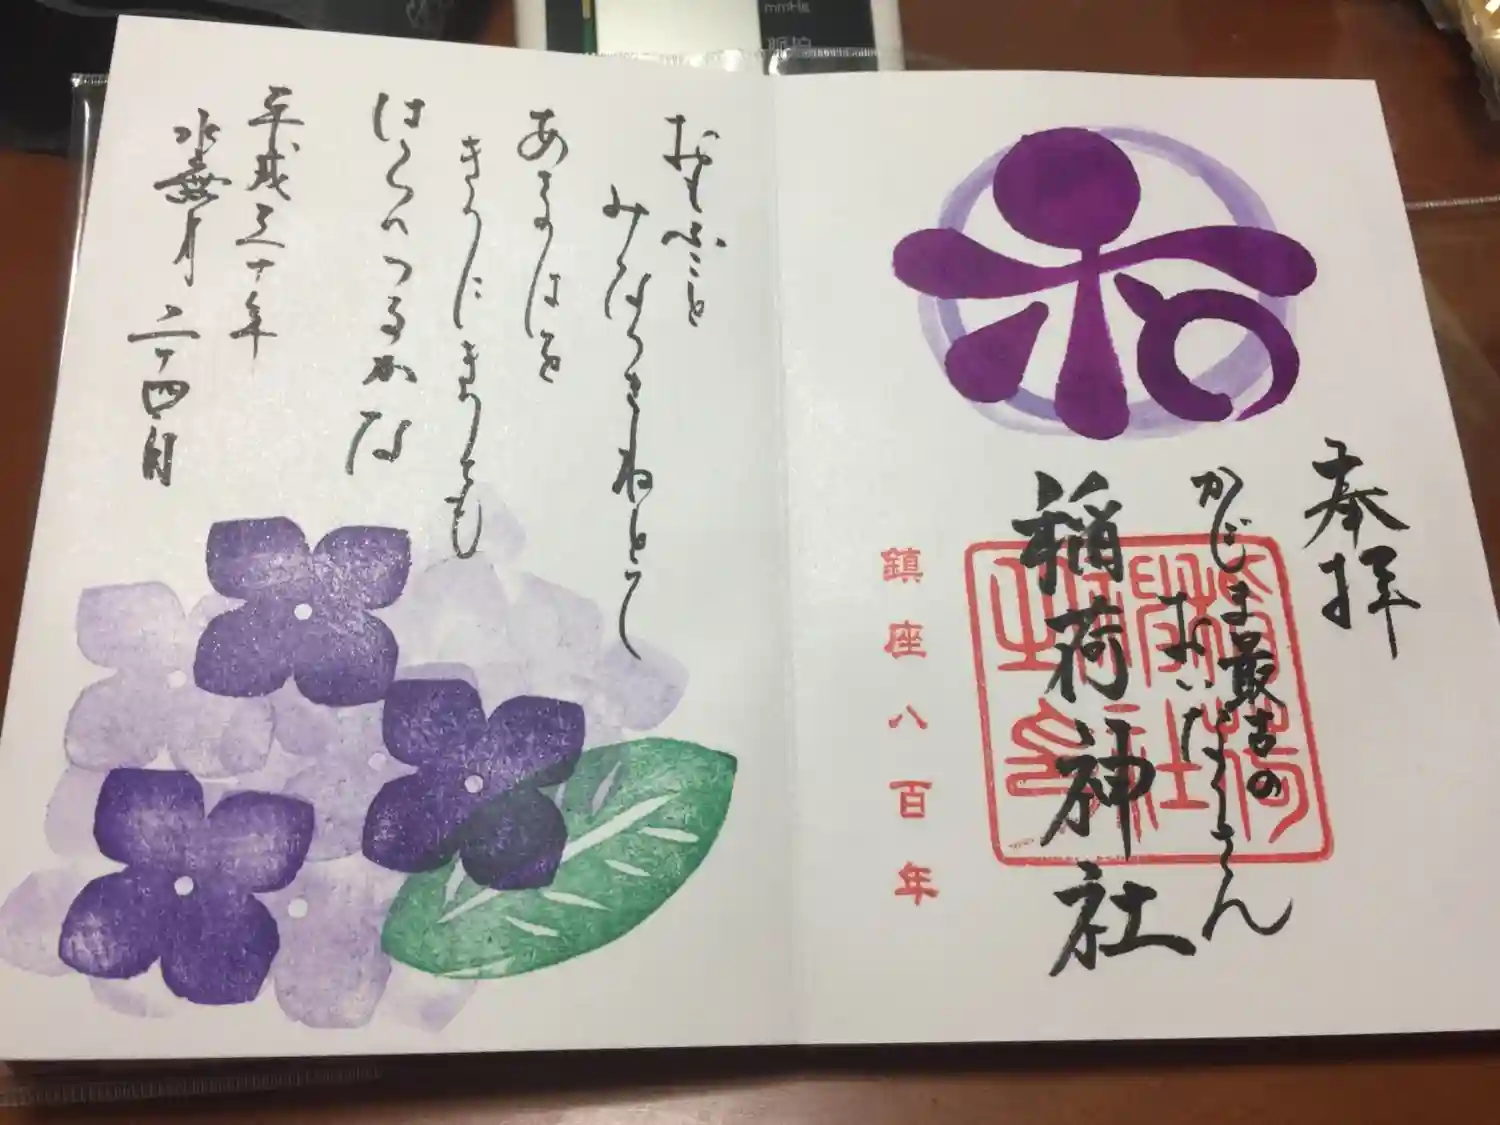 奉拝
かじま最古の
おいなりさん
稲荷神社
鎮座八百年
おもふこと
みなつきねとて
あさのはを
きりにきりても
はらへつるかな
平成三十年
水無月 二十四日
mmHg
脈拍